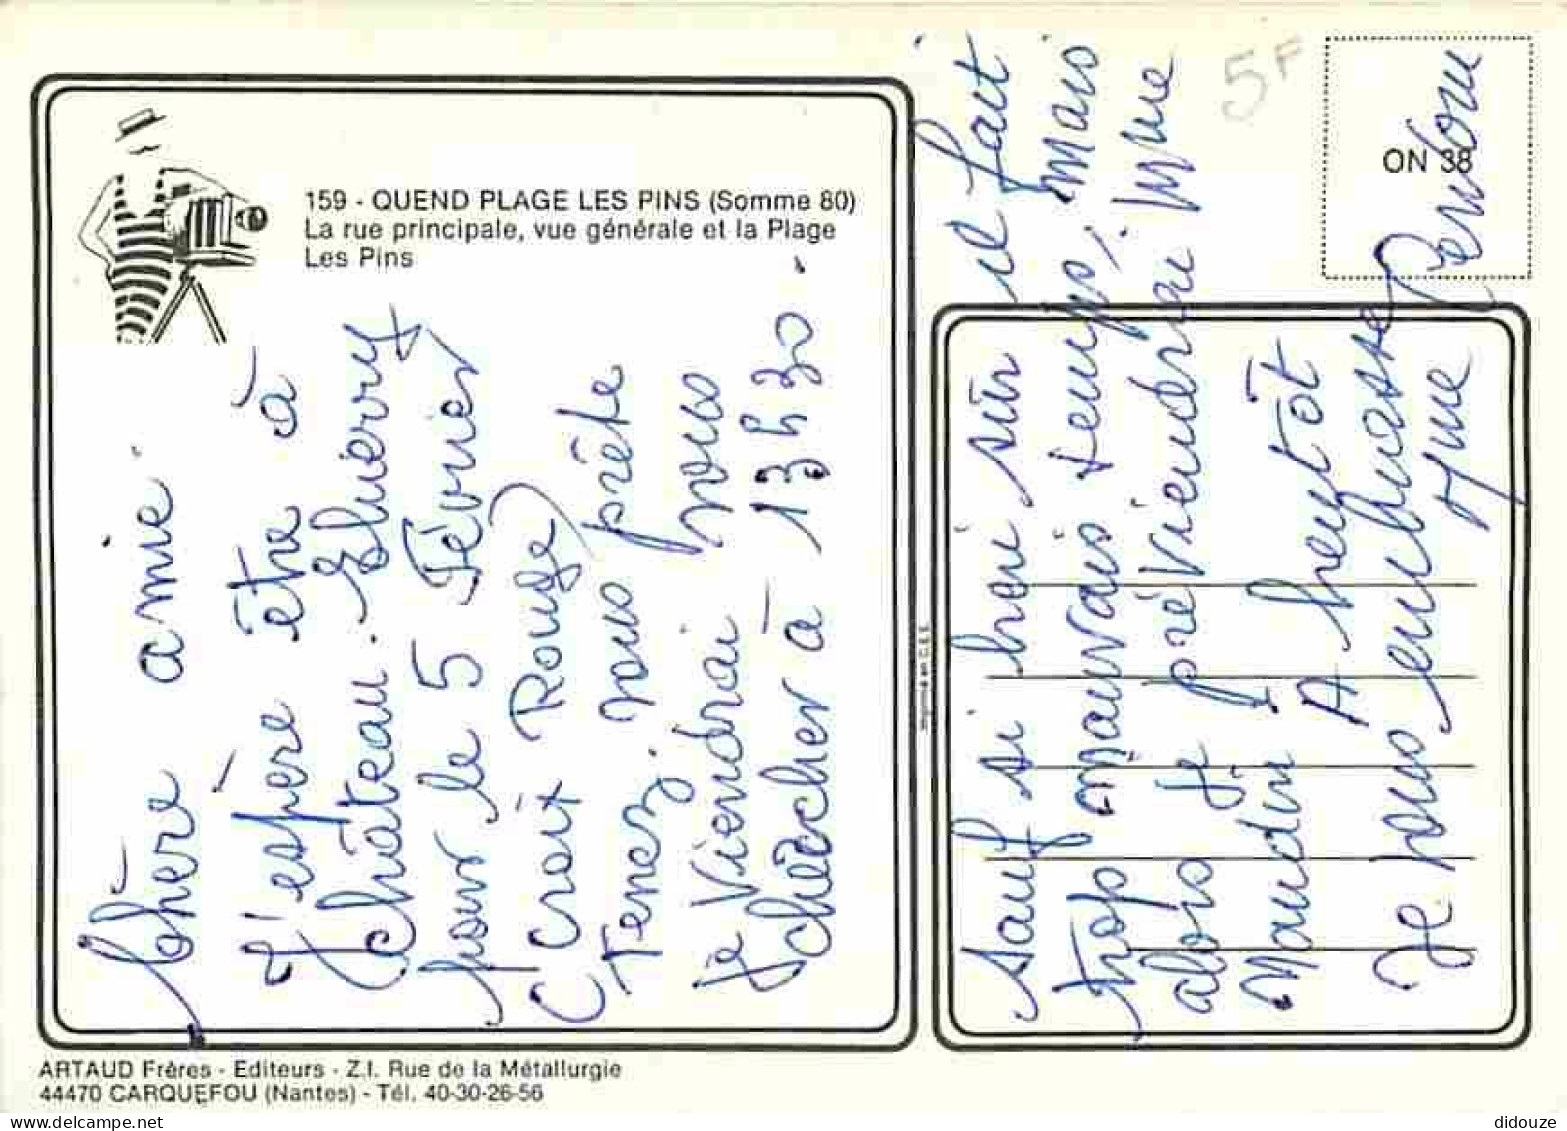 159 - QUEND PLAGE LES PINS (Somme 80)
La rue principale, vue générale et la Plage
Les Pins
Chère amie
J'espère être à
Château. Thierry
pour le 5 Février
(Croix Rouge)
Tenez. vous prête
je Viendrai vous
chercher à 13h30.
Sauf si bien sûr il fait
trop mauvais temps, mais
alors je préviendrai Mme
Maudin A bientôt
Je vous embrasse
Yvie
5F
ON 38
Imprimé en C.E.E.
ARTAUD Frères - Editeurs - Z.I. Rue de la Métallurgie
44470 CARQUEFOU (Nantes) - Tél. 40-30-26-56
delcampe.net
didouze